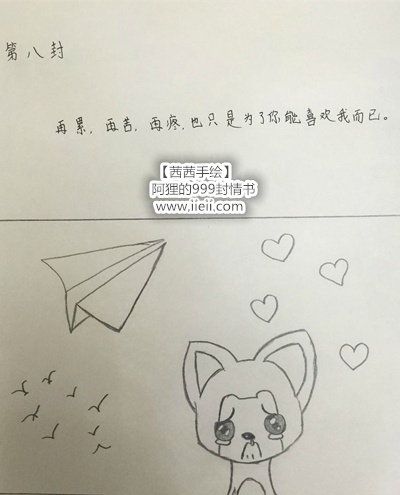 第八封
再累,再苦,再疼,也只是为了你能喜欢我而已。
【茜茜手绘】
阿狸的999封情书
www.iieii.com